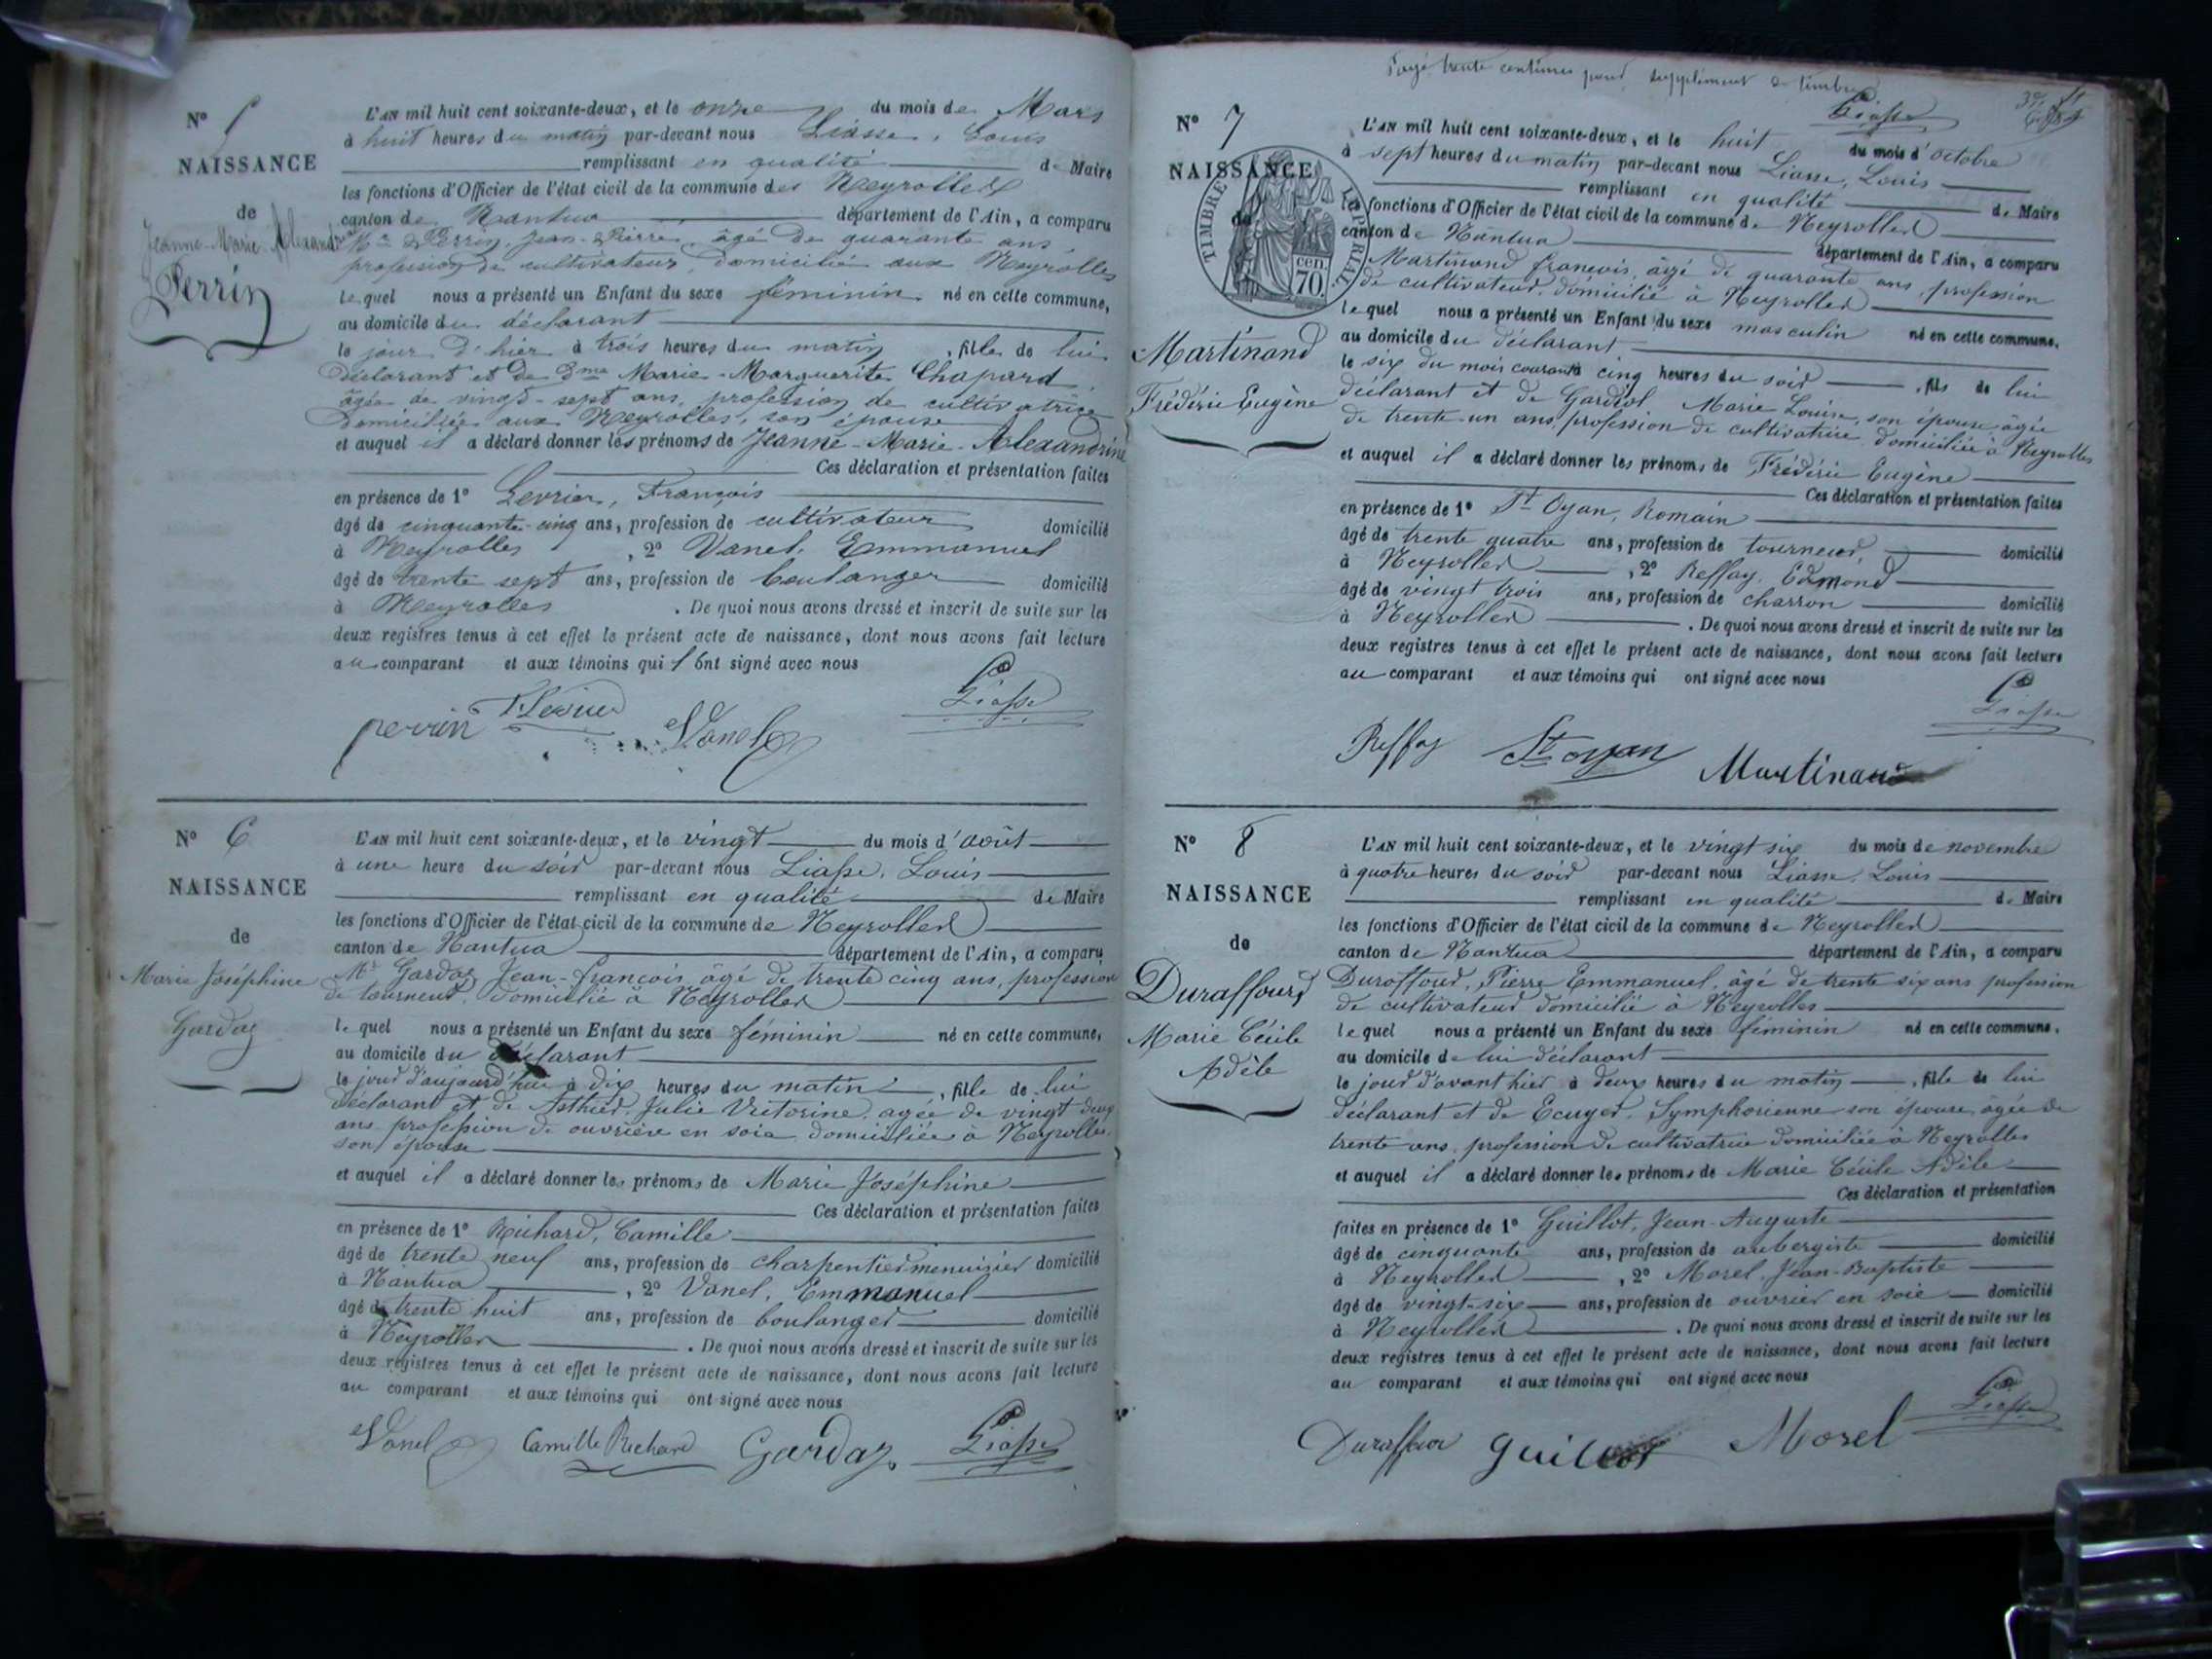 N° 5
NAISSANCE
de
Jeanne-Marie-Alexandrine
Perrin
L'AN mil huit cent soixante-deux, et le onze du mois de Mars
à huit heures du matin par-devant nous Liasse, Louis
remplissant en qualité de Maire
les fonctions d'Officier de l'état civil de la commune des Neyrolles
canton de Nantua département de l'Ain, a comparu
Mr Perrin, Jean-Pierre, âgé de quarante ans
profession de cultivateur, domicilié aux Neyrolles
lequel nous a présenté un Enfant du sexe féminin né en cette commune,
au domicile du déclarant
le jour d'hier à trois heures du matin, fille de lui
déclarant et de Dme Marie-Marguerite Chapard,
âgée de vingt-sept ans, profession de cultivatrice
domiciliée aux Neyrolles, son épouse
et auquel il a déclaré donner les prénoms de Jeanne-Marie-Alexandrine
Ces déclaration et présentation faites
en présence de 1° Levrier, François
âgé de cinquante-cinq ans, profession de cultivateur domicilié
à Neyrolles, 2° Vanel, Emmanuel
âgé de trente sept ans, profession de boulanger domicilié
à Neyrolles. De quoi nous avons dressé et inscrit de suite sur les
deux registres tenus à cet effet le présent acte de naissance, dont nous avons fait lecture
au comparant et aux témoins qui l'ont signé avec nous
Liasse
perrin Vanel
N° 6
NAISSANCE
de
Marie Joséphine
Gardaz
L'AN mil huit cent soixante-deux, et le vingt du mois d'août
à une heure du soir par-devant nous Liasse, Louis
remplissant en qualité de Maire
les fonctions d'Officier de l'état civil de la commune de Neyrolles
canton de Nantua département de l'Ain, a comparu
Mr Gardaz Jean-françois, âgé de trente cinq ans, profession
de tourneur, domicilié à Neyrolles
lequel nous a présenté un Enfant du sexe féminin né en cette commune,
au domicile du déclarant
le jour d'aujourd'hui à dix heures du matin, fille de lui
déclarant et de Julie Victorine, agée de vingt deux
ans profession de ouvrière en soie domiciliée à Neyrolles
son épouse
et auquel il a déclaré donner les prénoms de Marie Joséphine
Ces déclaration et présentation faites
en présence de 1° Richard, Camille
âgé de trente neuf ans, profession de charpentier menuisier domicilié
à Nantua, 2° Vanel, Emmanuel
âgé de trente huit ans, profession de boulanger domicilié
à Neyrolles. De quoi nous avons dressé et inscrit de suite sur les
deux registres tenus à cet effet le présent acte de naissance, dont nous avons fait lecture
au comparant et aux témoins qui ont signé avec nous
Vanel Camille Richard Gardaz Liasse
Payé trente centimes pour supplément de timbre
Liasse
N° 7
NAISSANCE
de
TIMBRE IMPERIAL
70 cen.
Martinand
Frédéric Eugène
L'AN mil huit cent soixante-deux, et le huit du mois d'octobre
à sept heures du matin par-devant nous Liasse, Louis
remplissant en qualité de Maire
les fonctions d'Officier de l'état civil de la commune de Neyrolles
canton de Nantua département de l'Ain, a comparu
Martinand françois, âgé de quarante ans, profession
de cultivateur, domicilié à Neyrolles
lequel nous a présenté un Enfant du sexe masculin né en cette commune,
au domicile du déclarant
le six du mois courant à cinq heures du soir, fils de lui
déclarant et de Gardiol Marie Louise, son épouse âgée
de trente-un ans, profession de cultivatrice domiciliée à Neyrolles
et auquel il a déclaré donner les prénoms de Frédéric Eugène
Ces déclaration et présentation faites
en présence de 1° St Oyan, Romain
âgé de trente quatre ans, profession de tourneur, domicilié
à Neyrolles, 2° Reffay, Edmond
âgé de vingt trois ans, profession de charron domicilié
à Neyrolles. De quoi nous avons dressé et inscrit de suite sur les
deux registres tenus à cet effet le présent acte de naissance, dont nous avons fait lecture
au comparant et aux témoins qui ont signé avec nous
Liasse
Reffay St oyan Martinand
N° 8
NAISSANCE
de
Duraffourd
Marie Cécile
Adèle
L'AN mil huit cent soixante-deux, et le vingt six du mois de novembre
à quatre heures du soir par-devant nous Liasse, Louis
remplissant en qualité de Maire
les fonctions d'Officier de l'état civil de la commune de Neyrolles
canton de Nantua département de l'Ain, a comparu
Duraffourd, Pierre Emmanuel, âgé de trente six ans profession
de cultivateur domicilié à Neyrolles
lequel nous a présenté un Enfant du sexe féminin né en cette commune,
au domicile de lui déclarant
le jour d'avant hier à deux heures du matin, fille de lui
déclarant et de Ecuyer, Symphorienne son épouse, âgée de
trente ans, profession de cultivatrice domiciliée à Neyrolles
et auquel il a déclaré donner les prénoms de Marie Cécile Adèle
Ces déclaration et présentation
faites en présence de 1° Guillot, Jean-Auguste
âgé de cinquante ans, profession de aubergiste domicilié
à Neyrolles, 2° Morel, Jean-Baptiste
âgé de vingt-six ans, profession de ouvrier en soie domicilié
à Neyrolles. De quoi nous avons dressé et inscrit de suite sur les
deux registres tenus à cet effet le présent acte de naissance, dont nous avons fait lecture
au comparant et aux témoins qui ont signé avec nous
Duraffour guillot Morel Liasse